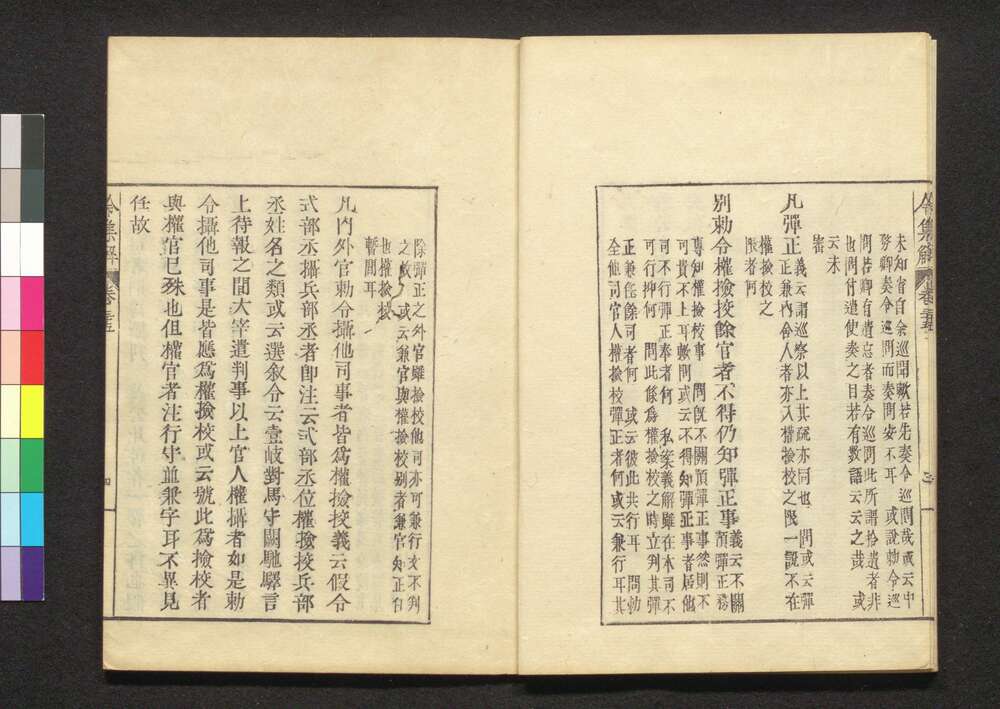 令集解 卷三十五
未知省自余巡聞歟若先奏令巡問哉或云中
務卿奏令巡問而奏問安不耳 或說勅令巡
問若卿有遺忘者奏令巡問此所謂拾遺者非
也問付遣使奏之日若有數語云云之哉 或
云未
審
凡彈正
義云謂巡察以上其疏亦同也 問或云彈
正兼內舍人者亦入權撿挍之限一說不在
權撿挍之
限者何
別勅令權撿挍餘官者不得仍知彈正事
義云不關
預彈正務
專知權撿挍事 問旣不關預彈正事然則不
可責不上耳歟問或云不得知彈正事者居他
司不行彈正奉者何 私案義解雖在本司不
可行抑何 問此條爲權撿挍之時立判其彈
正兼任餘司者何 或云彼此共行耳 問勅
令他司官人權撿挍彈正者何或云兼行耳其
除彈正之外官雖撿挍他司亦可兼行文不判
之故 或云兼官與權撿挍別者兼官知正行
也權撿挍
暫間耳
凡內外官勅令攝他司事者皆爲權撿挍義云假令
式部丞攝兵部丞者卽注云式部丞位權撿挍兵部
丞姓名之類或云選叙令云壹岐對馬守闕馳驛言
上待報之間大宰遣判事以上官人權攝者如是勅
令攝他司事是皆應爲權撿挍或云號此爲撿挍者
與權官已殊也但權官者注行守並兼字耳不異見
任故
令集解 卷三十五 四